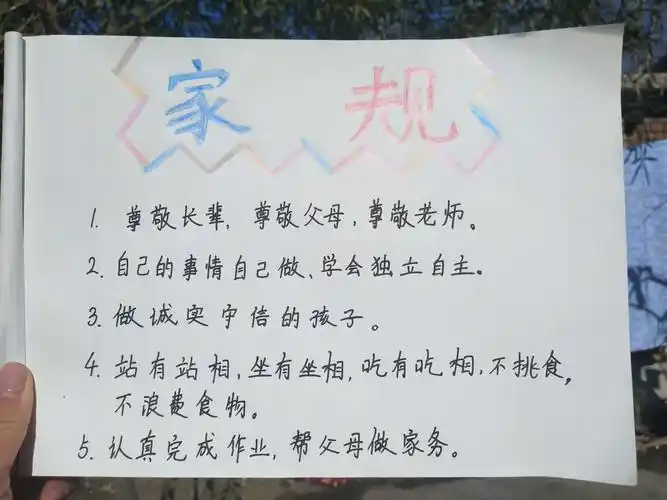 家规
1. 尊敬长辈，尊敬父母，尊敬老师。
2. 自己的事情自己做、学会独立自主。
3. 做诚实守信的孩子。
4. 站有站相，坐有坐相，吃有吃相，不挑食，
不浪费食物。
5. 认真完成作业，帮父母做家务。